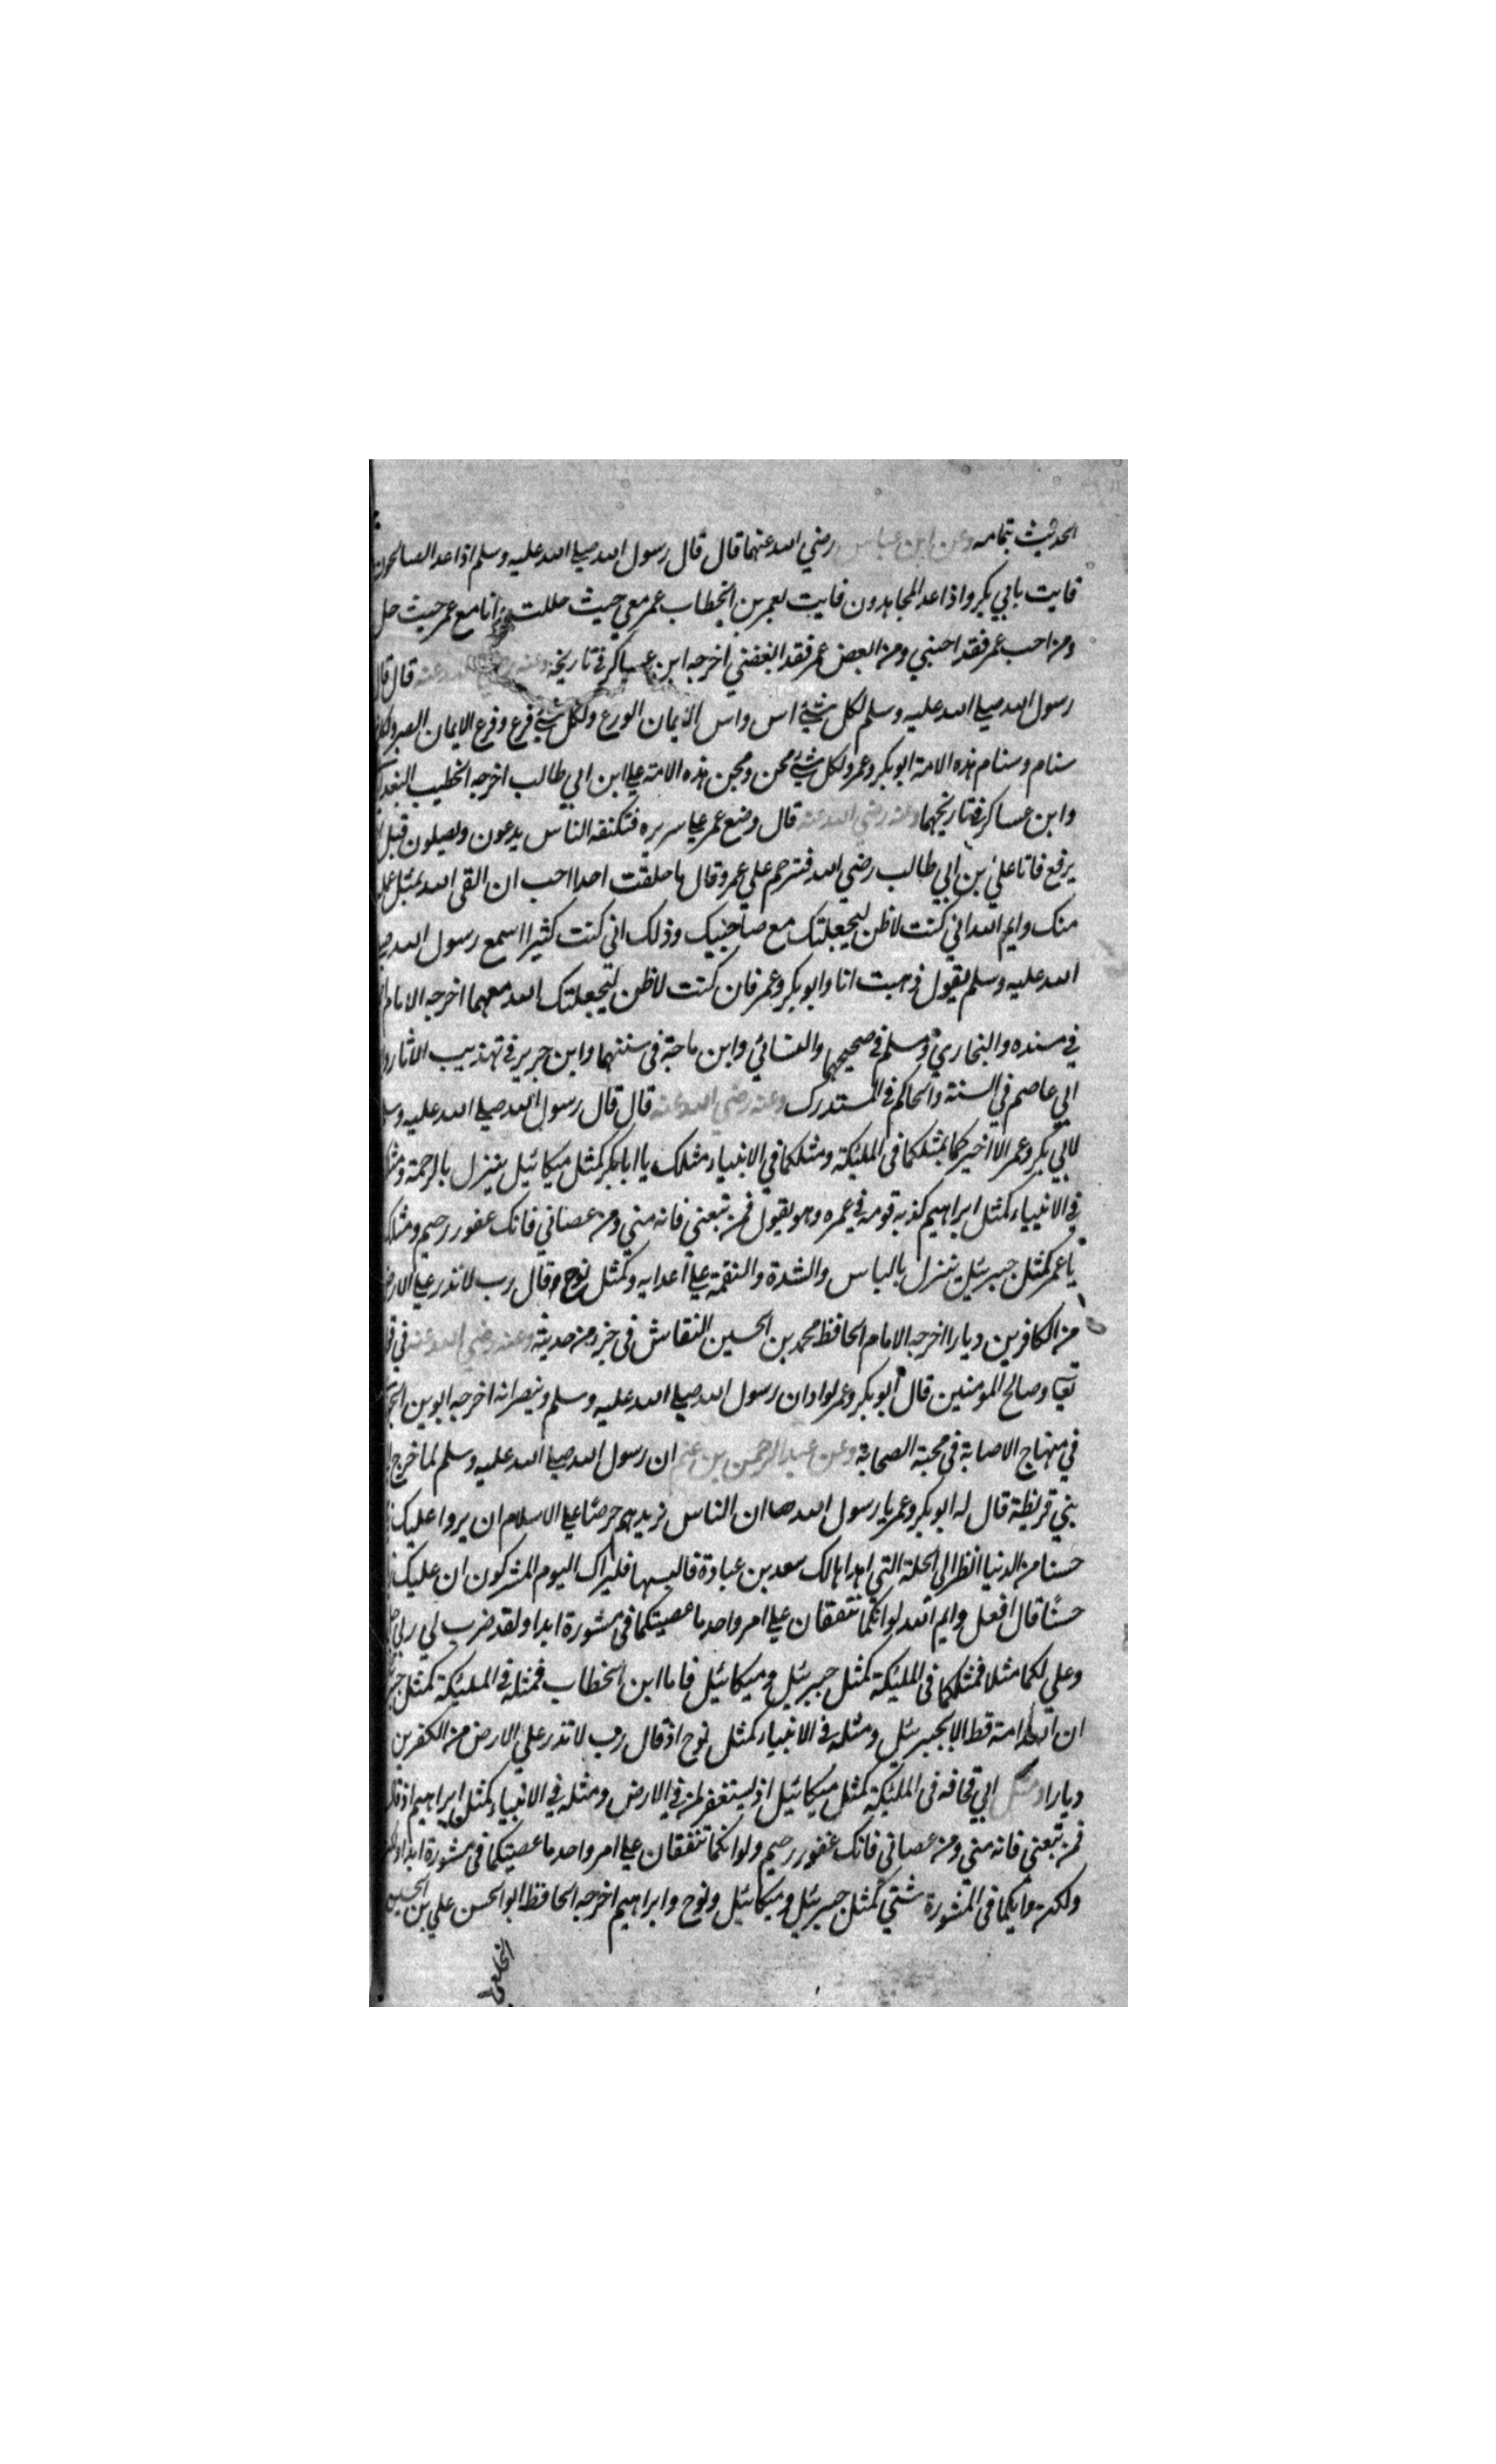 الحديث بتمامه وعن ابن عباس رضي الله عنهما قال قال رسول الله صلى الله عليه وسلم اذا عد الصالحون
فايت بابي بكر واذا عد المجاهدون فايت لعمر بن الخطاب عمر معي حيث حللت وانا مع عمر حيث حل
ومن احب عمر فقد احبني ومن ابغض عمر فقد ابغضني اخرجه ابن عساكر في تاريخه وعنه رضي الله عنه قال قال
رسول الله صلى الله عليه وسلم لكل شئ اس واس الايمان الورع ولكل شئ فرع وفرع الايمان الصبر ولكل
سنام وسنام هذه الامة ابو بكر وعمر ولكل شئ مجن ومجن هذه الامة علي ابن ابي طالب اخرجه الخطيب
وابن عساكر في تاريخهما وعنه رضي الله عنه قال وضع عمر علي سريره فتكنفه الناس يدعون ويصلون قبل
يرفع فاتا علي بن ابي طالب رضي الله فترحم علي عمر وقال ما خلفت احدا احب ان القى الله بمثل عمله
منك وايم الله اني كنت لاظن ليجعلنك مع صاحبيك وذلك اني كنت كثيرا اسمع رسول الله
الله عليه وسلم يقول ذهبت انا وابو بكر وعمر فان كنت لاظن ليجعلنك الله معهما اخرجه الامام
في مسنده والبخاري ومسلم في صحيحهما والنسائي وابن ماجة في سننهما وابن جرير في تهذيب الاثار
ابي عاصم في السنة والحاكم في المستدرك وعنه رضي الله عنه قال قال رسول الله صلى الله عليه
لابي بكر وعمر الا اخبركما بمثلكما في الملئكة ومثلكما في الانبياء مثلك يا ابا بكر كمثل ميكائيل ينزل بالرحمة
في الانبياء كمثل ابراهيم كذبه قومه في عمره وهو يقول فمن تبعني فانه مني ومن عصاني فانك غفور رحيم ومثلك
يا عمر كمثل جبرئيل ينزل بالباس والشدة والنقمة علي اعدايه وكمثل نوح وقال رب لا تذر علي
من الكافرين ديارا اخرجه الامام الحافظ محمد بن الحسين النقاش في جزء من حديثه وعنه رضي الله عنه في
تعا وصالح المومنين قال ابو بكر وعمر لوادان رسول الله صلى الله عليه وسلم وينصرانه اخرجه
في منهاج الاصابة في محبة الصحابة وعن عبد الرحمن بن غنم ان رسول الله صلى الله عليه وسلم لما خرج
بني قريظة قال له ابو بكر وعمر يا رسول الله ان الناس يزيدهم حرصا علي الاسلام ان يروا عليك
حسنا من الدنيا انظر الي الحلة التي اهداها لك سعد بن عبادة فالبسها فليراك اليوم المشركون ان عليك
حسنا قال افعل وايم الله لو انكما تتفقان علي امر واحد ما عصيتكما في مشورة ابدا ولقد ضرب لي ربي
وعلي لكما مثلا فمثلكما في الملئكة كمثل جبرئيل وميكائيل فاما ابن الخطاب فمثله في الملئكة كمثل
ان الله امة قط الا بجبرئيل ومثله في الانبياء كمثل نوح اذ قال رب لا تذر علي الارض من الكفرين
ديارا ومثل ابي قحافه في الملئكة كمثل ميكائيل اذ يستغفر لمن في الارض ومثله في الانبياء كمثل ابراهيم اذ قال
فمن تبعني فانه مني ومن عصاني فانك غفور رحيم ولو انكما تتفقان علي امر واحد ما عصيتكما في مشورة ابدا
ولكن في المشورة شتي كمثل جبرئيل وميكائيل ونوح وابراهيم اخرجه الحافظ ابو الحسن علي بن الحسين
الخلعي